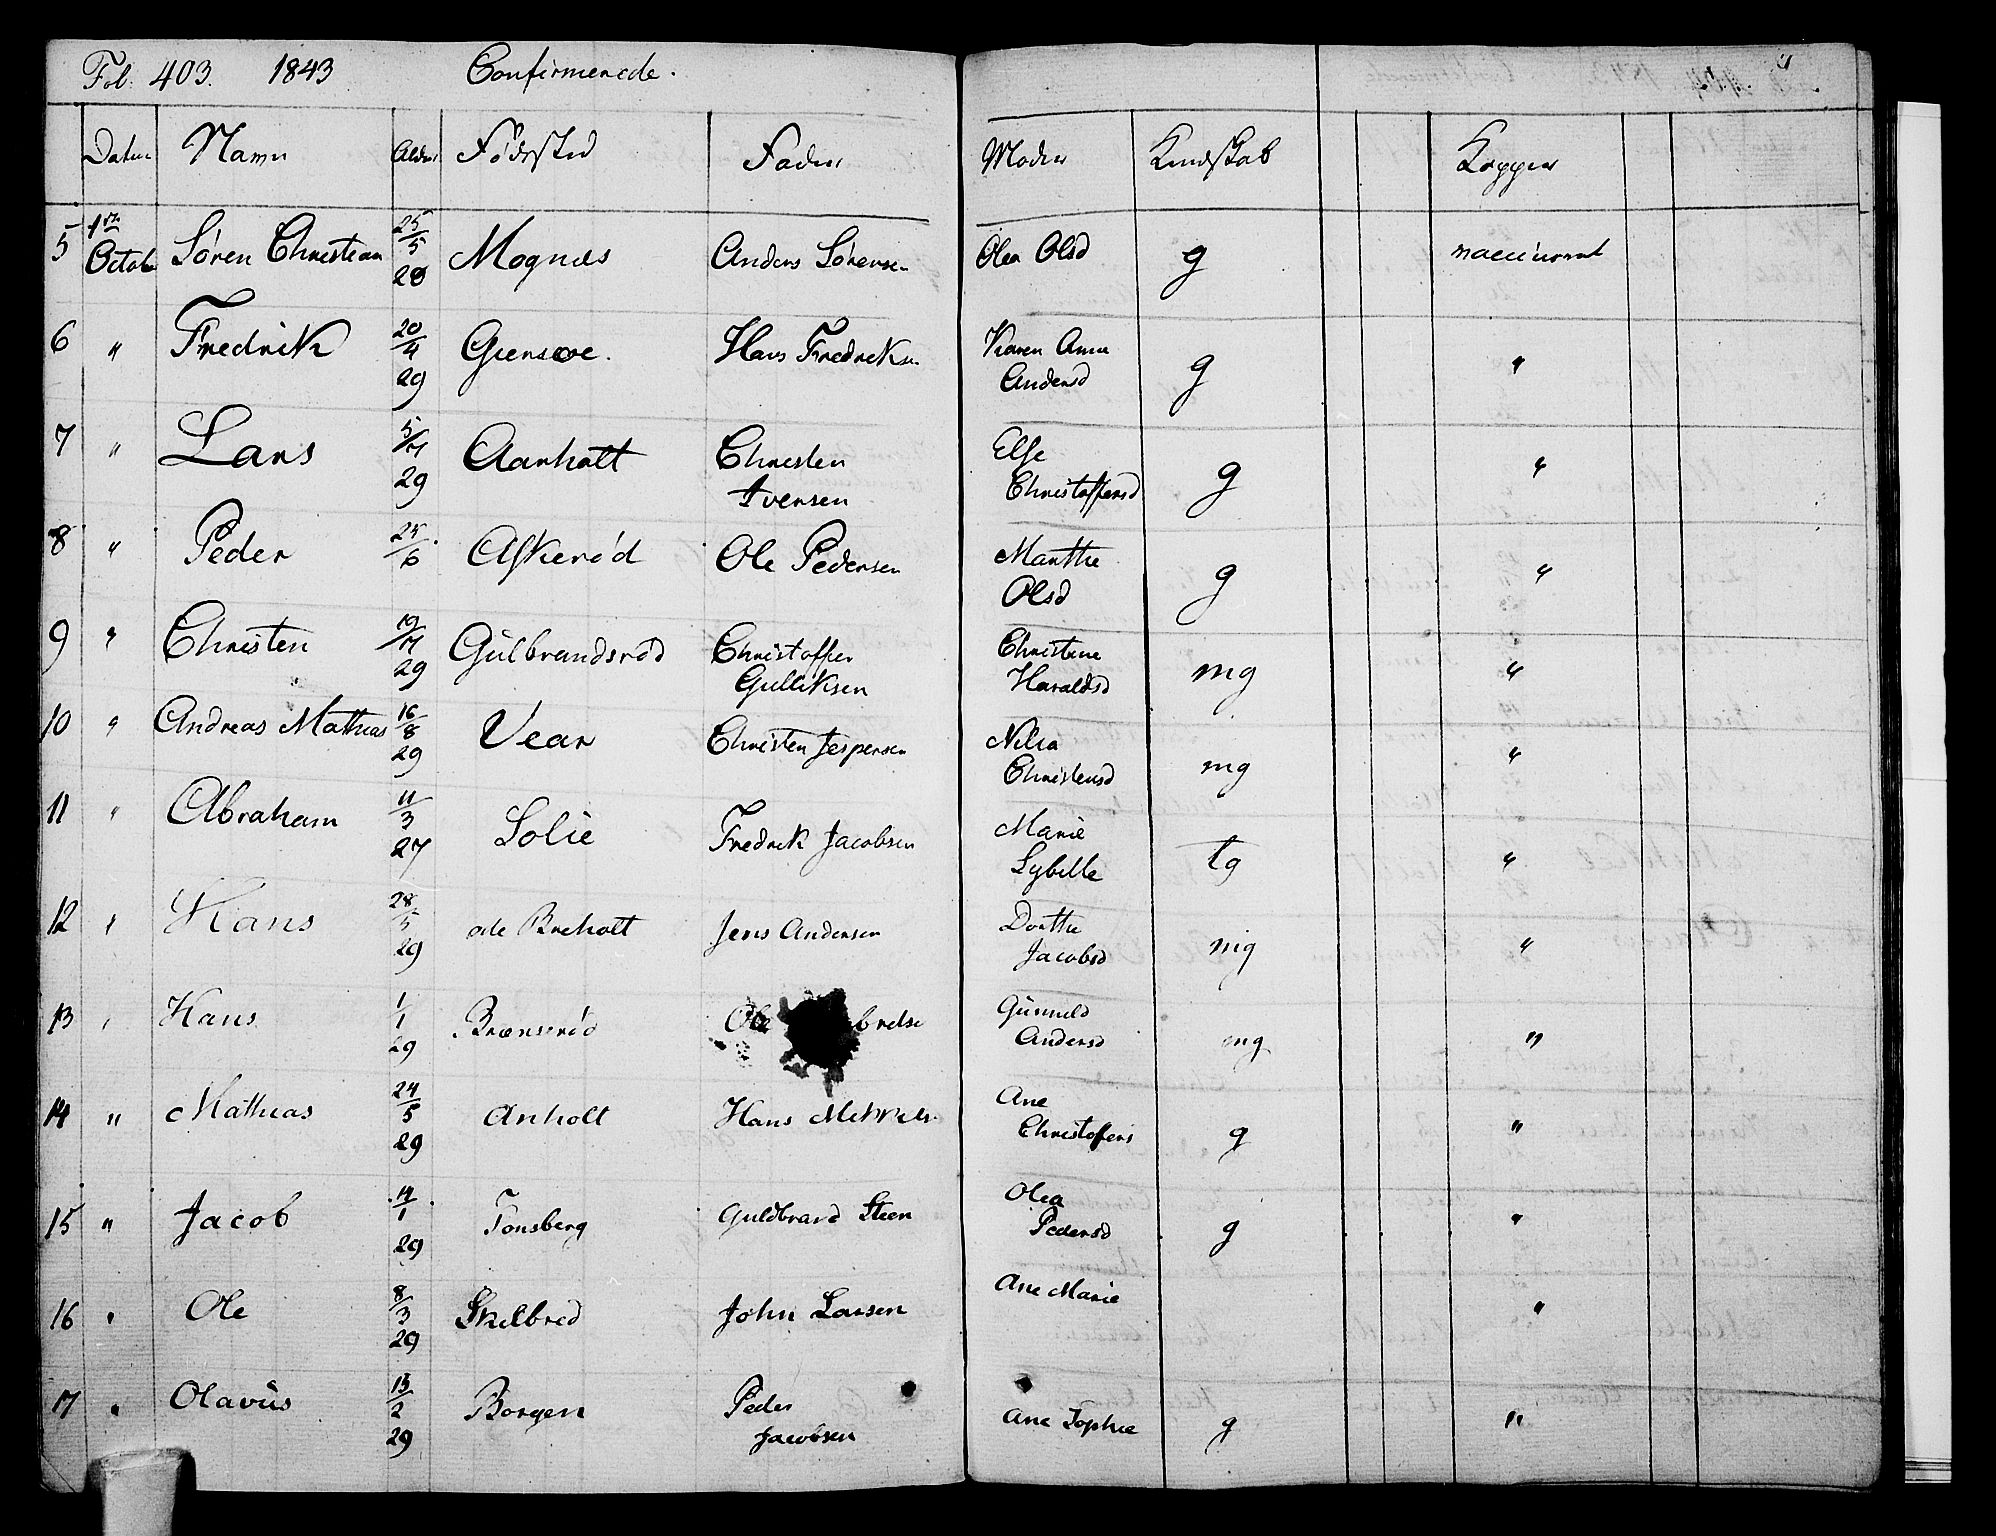 Fol. 403. 1843 Confirmerede.
Datum Navn Alder Fødested Fader Moder Kundskab Kopper
5 1ste Octob Søren Christian 25/5 28 Mognes Anders Sørensen Olea Olsd g vaccinerat
6 " Fredrik 20/4 29 Giersøe. Hans Fredreks. Karen Anne
Andersd g "
7 " Lars 5/7 29 Aarholt Christen Else
Iversen Christoffersd g "
8 " Peder 24/6 Askerød Ole Pedersen Marthe
Olsd g "
9 " Christen 19/7 29 Gulbrandsrød Christoffer Christine
Gulliksen Haraldsd mg "
10 " Andreas Mathias 16/8 29 Vear Christen Jespersen Nilia
Christensd mg "
11 " Abraham 11/3 27 Solie Fredrik Jacobsen Marie
Sybille tg "
12 " Hans 28/5 29 Breholt Jens Andersen Dorthe
Jacobsd mg "
13 " Hans 1/1 29 Brænserød Ole Gunnild
Andersd mg "
14 " Mathias 24/5 29 Anholt Hans Ane
Christoffers g "
15 " Jacob 14/1 29 Tønsberg Guldbrand Steen Olea
Pedersd g "
16 " Ole 8/3 29 Skelbred John Larsen Ane Marie "
17 " Olavus 13/2 29 Borgen Peder
Jacobsen Ane Sophie g "